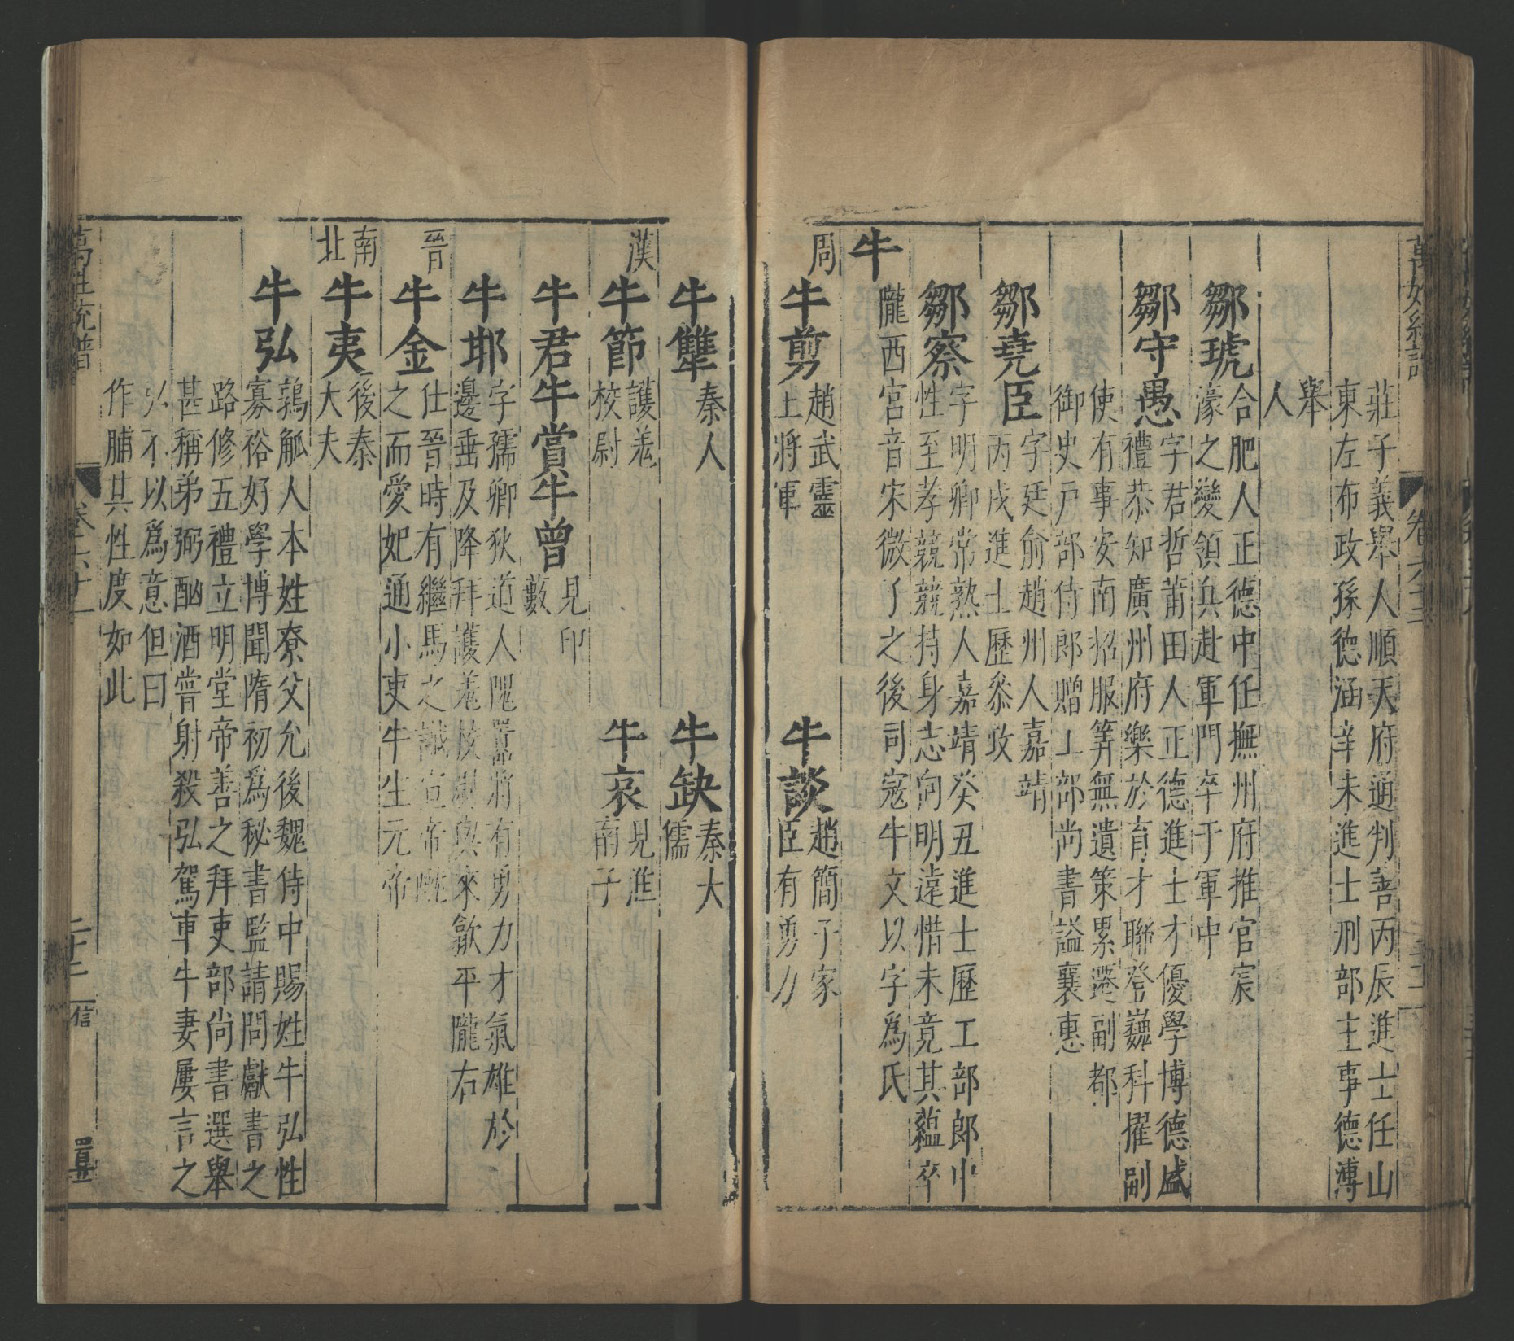 萬姓統譜
卷六十一
莊子義舉人順天府通判善丙辰進士任山
東左布政孫德涵辛未進士刑部主事德溥
舉
人
鄒琥
合肥人正德中任撫州府推官宸
濠之變領兵赴軍門卒于軍中
鄒守愚
字君哲莆田人正德進士才優學博德盛
禮恭知廣州府樂於育才聯登巍科擢副
使有事安南招服筭無遺策累遷副都
御史戶部侍郎贈工部尚書謚襄惠
鄒堯臣
字廷俞趙州人嘉靖
丙戌進士歷叅政
鄒察
字明卿常熟人嘉靖癸丑進士歷工部郎中
性至孝兢兢持身志向明達惜未竟其蘊卒
牛
隴西宮音宋微子之後司寇牛文以字爲氏
周
牛剪
趙武靈
王將軍
牛談
趙簡子家
臣有勇力
牛犨
秦人
牛缺
秦大
儒
漢
牛節
護羌
校尉
牛哀
見淮
南子
牛君 牛賞 牛曾
見印
藪
牛邯
字孺卿狄道人隗囂將有勇力才氣雄於
邊垂及降拜護羌校尉與來歙平隴右
晉
牛金
仕晉時有繼馬之讖宣帝酖
之而愛妃通小吏牛生元帝
南
北
牛夷
後秦
大夫
牛弘
鶉觚人本姓尞父允後魏侍中賜姓牛弘性
寡裕好學博聞隋初爲秘書監請開獻書之
路修五禮立明堂帝善之拜吏部尚書選舉
甚稱弟弼酗酒嘗射殺弘駕車牛妻屢言之
弘不以爲意但曰
作脯其性度如此
萬姓統譜
卷六十一
二十二
信